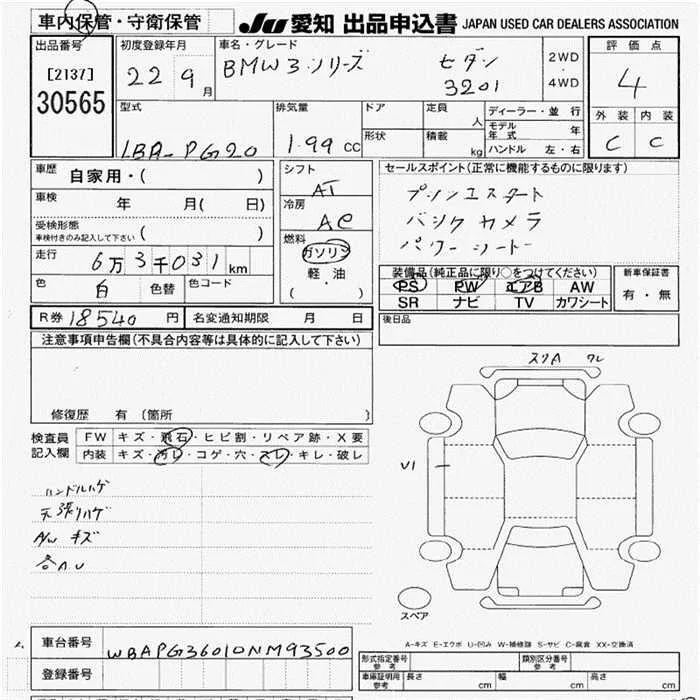 車内保管・守衛保管
JU 愛知 出品申込書 JAPAN USED CAR DEALERS ASSOCIATION
出品番号
[2137]
30565
初度登録年月
22 9月
車名・グレード
BMW3シリーズ セダン
320i
2WD
・
4WD
評価点
4
外装 内装
C C
型式
LBA-PG20
排気量
1.99 CC
ドア
形状
定員
人
積載
kg
ディーラー・並行
モデル年式 年
ハンドル 左・右
車歴
自家用・( )
車検
年 月( 日)
受検形態
車検付きのみ記入して下さい ( )
走行
6万3千031km
色
白 色替
色コード
シフト
AT
冷房
AC
燃料
ガソリン
軽・油
( )
セールスポイント(正常に機能するものに限ります)
プッシュスタート
バックカメラ
パワーシート
装備品(純正品に限り○をつけてください)
PS PW エアB AW
SR ナビ TV カワシート
新車保証書
有・無
後日品
R券 18540 円
名変通知期限 月 日
注意事項申告欄(不具合内容等は具体的に記入して下さい)
修復歴 有 〔箇所 〕
検査員
記入欄
FW キズ・飛石・ヒビ割・リペア跡・X要
内装 キズ・汚レ・コゲ・穴・スレ・キレ・破レ
ハンドルハゲ
天張リハゲ
A/W キズ
各AU
スリA ワレ
U1
スペア
A-キズ E-エクボ U-凹み W-補修跡 S-サビ C-腐食 XX-交換済
車台番号
WBAPG36010NM93500
登録番号
形式指定番号
参考
類別区分番号
参考
車庫証明用
参考
長さ cm
幅 cm
高さ cm